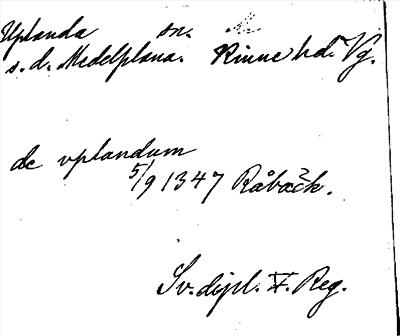 Uplanda sn.
s.d. Medelplana. Kinne hd. Vg.
de vplandum
5/9 1347 Råbäck.
Sv. dipl. V. Reg.